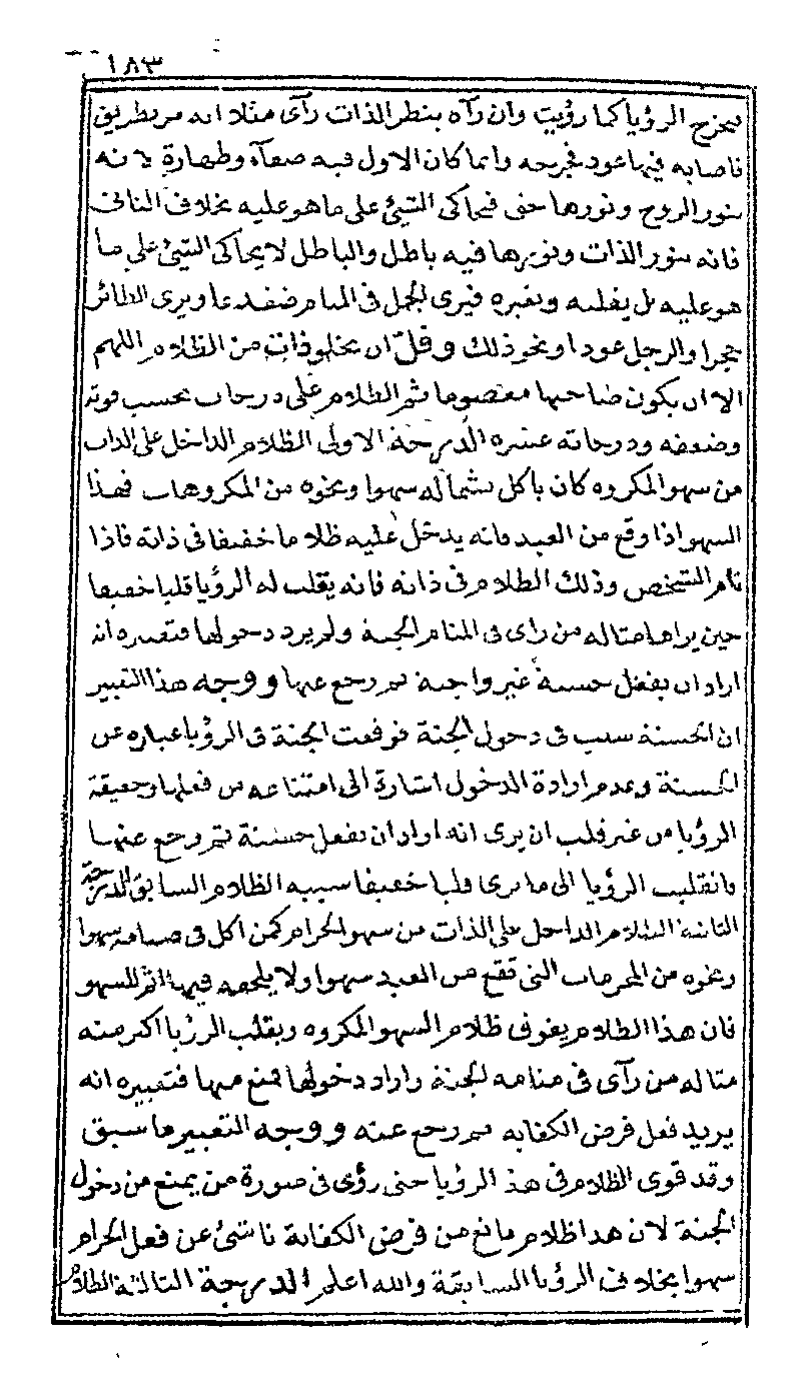 ١٨٣
فيخرج الرؤيا كما رؤيت وان رآه بنظر الذات رأى مثلا انه مر بطريق
فاصابه فيها عود فجرحه وانما كان الاول فيه صفآء وطهارة لانه
بنور الروح ونورها حق فيحاكى الشئ على ما هو عليه بخلاف الثانى
فانه بنور الذات ونورها فيه باطل والباطل لا يحاكى الشئ على ما
هو عليه بل يقلبه ويغيره فيرى الجمل فى المنام ضفدعا ويرى الطائر
حجرا والرجل عودا ونحو ذلك وقل ان يخلو ذات من الظلام اللهم
الا ان يكون صاحبها معصوما ثم الظلام على درجات بحسب قوته
وضعفه ودرجاته عشرة الدرجة الاولى الظلام الداخل على الذات
من سهو المكروه كان ياكل بشماله سهوا ونحوه من المكروهات فهذا
السهو اذا وقع من العبد فانه يدخل عليه ظلاما خفيفا فى ذاته فاذا
نام الشخص وذلك الظلام فى ذاته فانه يقلب له الرؤيا قلبا خفيفا
حين يراها مثاله من رأى فى المنام الجنة ولم يرد دخولها فتعبيره انه
اراد ان يفعل حسنة غير واجبة ثم رجع عنها ووجه هذا التعبير
ان الحسنة سبب فى دخول الجنة فوقعت الجنة فى الرؤيا عبارة عن
الحسنة وعدم ارادة الدخول اشارة الى امتناعه من فعلها وحقيقة
الرؤيا من غير قلب ان يرى انه اراد ان يفعل حسنة ثم رجع عنها
فانقلبت الرؤيا الى ما يرى قلبا خفيفا سببه الظلام السابق الدرجة
الثانية الظلام الداخل على الذات من سهو الحرام كمن اكل فى صيامه سهوا
ونحوه من المحرمات التى تقع من العبد سهوا ولا يلحقه فيها اثم للسهو
فان هذا الظلام يفوق ظلام السهو المكروه ويقلب الرؤيا اكثر منه
مثاله من رآى فى منامه الجنة واراد دخولها فمنع منها فتعبيره انه
يريد فعل فرض الكفاية ثم رجع عنه ووجه التعبير ما سبق
وقد قوى الظلام فى هذ الرؤيا حتى رؤى فى صورة من يمنع من دخول
الجنة لان هذا ظلام مانع من فرض الكفاية ناشئ عن فعل الحرام
سهوا بخلاف الرؤيا السابقة والله اعلم الدرجة الثالثة الظلام